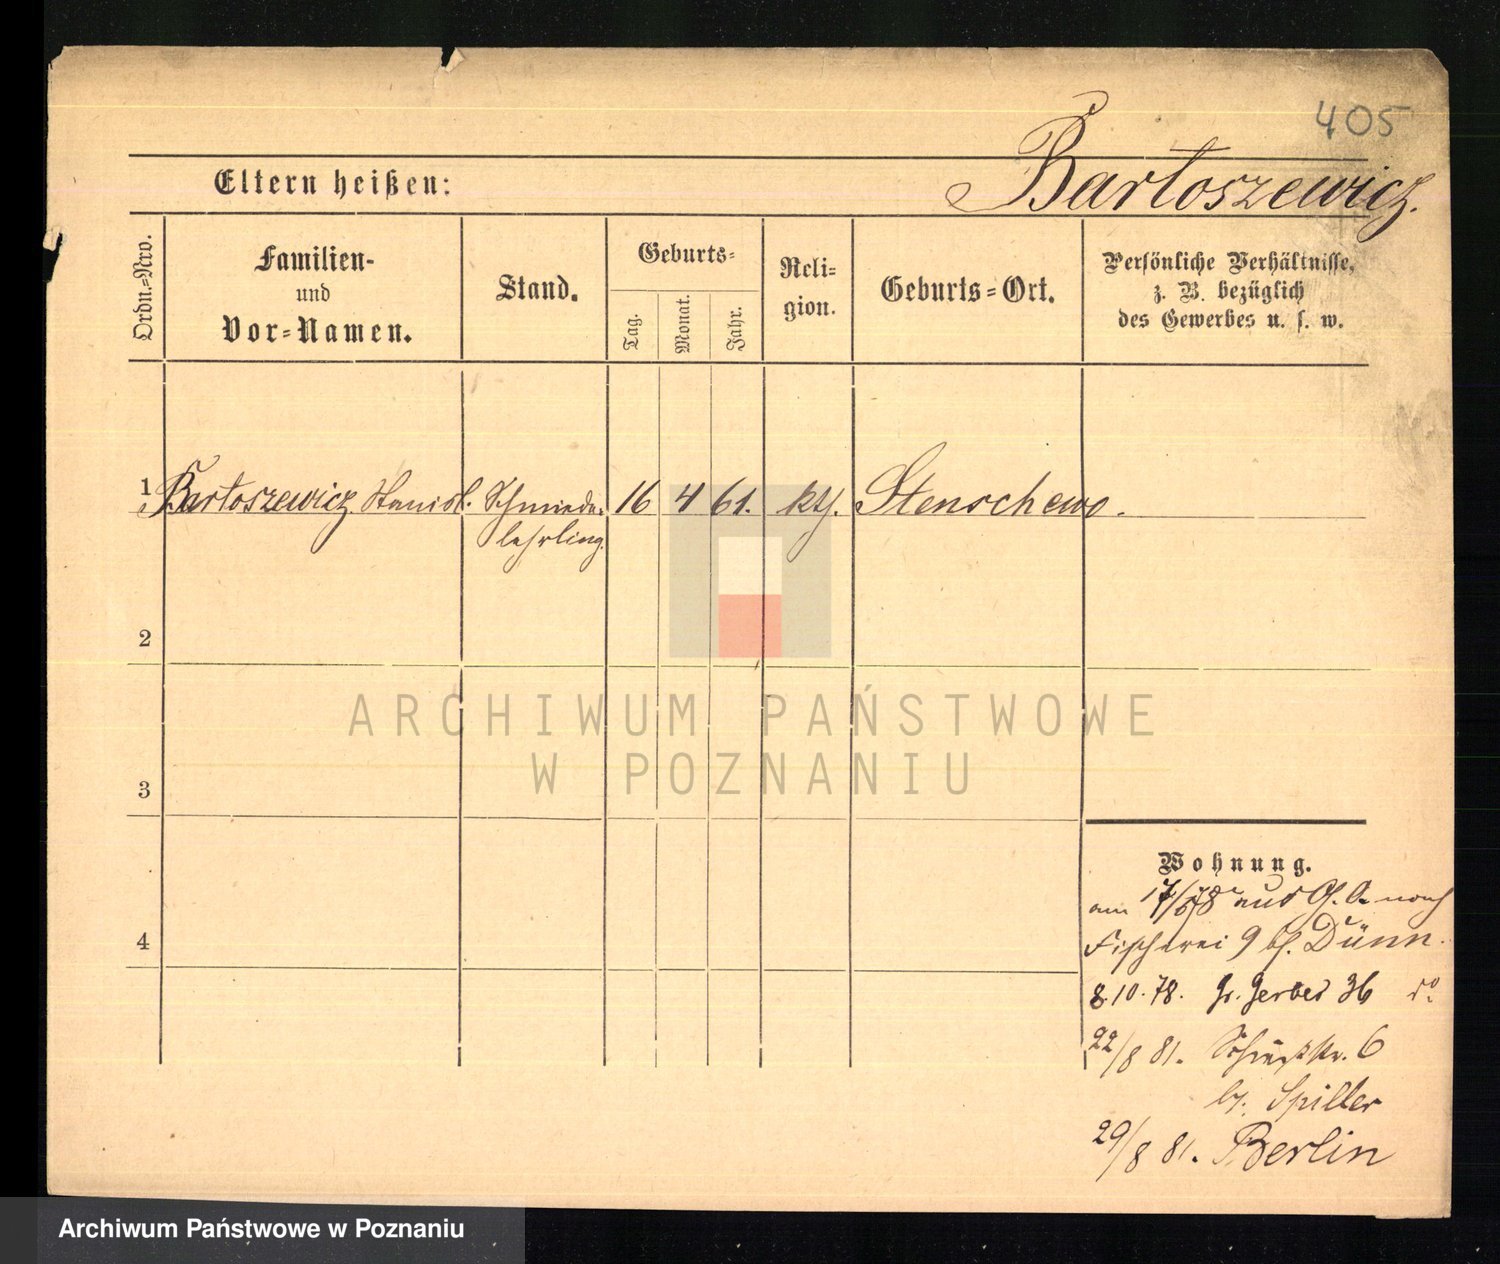 405
Bartoszewicz.
Eltern heißen:
Ordn.=Nro.
Familien-
und
Vor=Namen.
Stand.
Geburts=
Tag.
Monat.
Jahr.
Reli=
gion.
Geburts=Ort.
Persönliche Verhältnisse,
z. B. bezüglich
des Gewerbes u. s. w.
1 Bartoszewicz Stanisl. Schmiede= 16 4 61. kth. Stenschewo.
lehrling.
2
ARCHIWUM PAŃSTWOWE
W POZNANIU
3
Wohnung.
am 17/ 78 aus nach
4
Fischerei 9 bei Dünn.
8.10.78. Gr. Gerber 36 do
22/8 81. 6
bei Spiller
29/8 81. Berlin
Archiwum Państwowe w Poznaniu